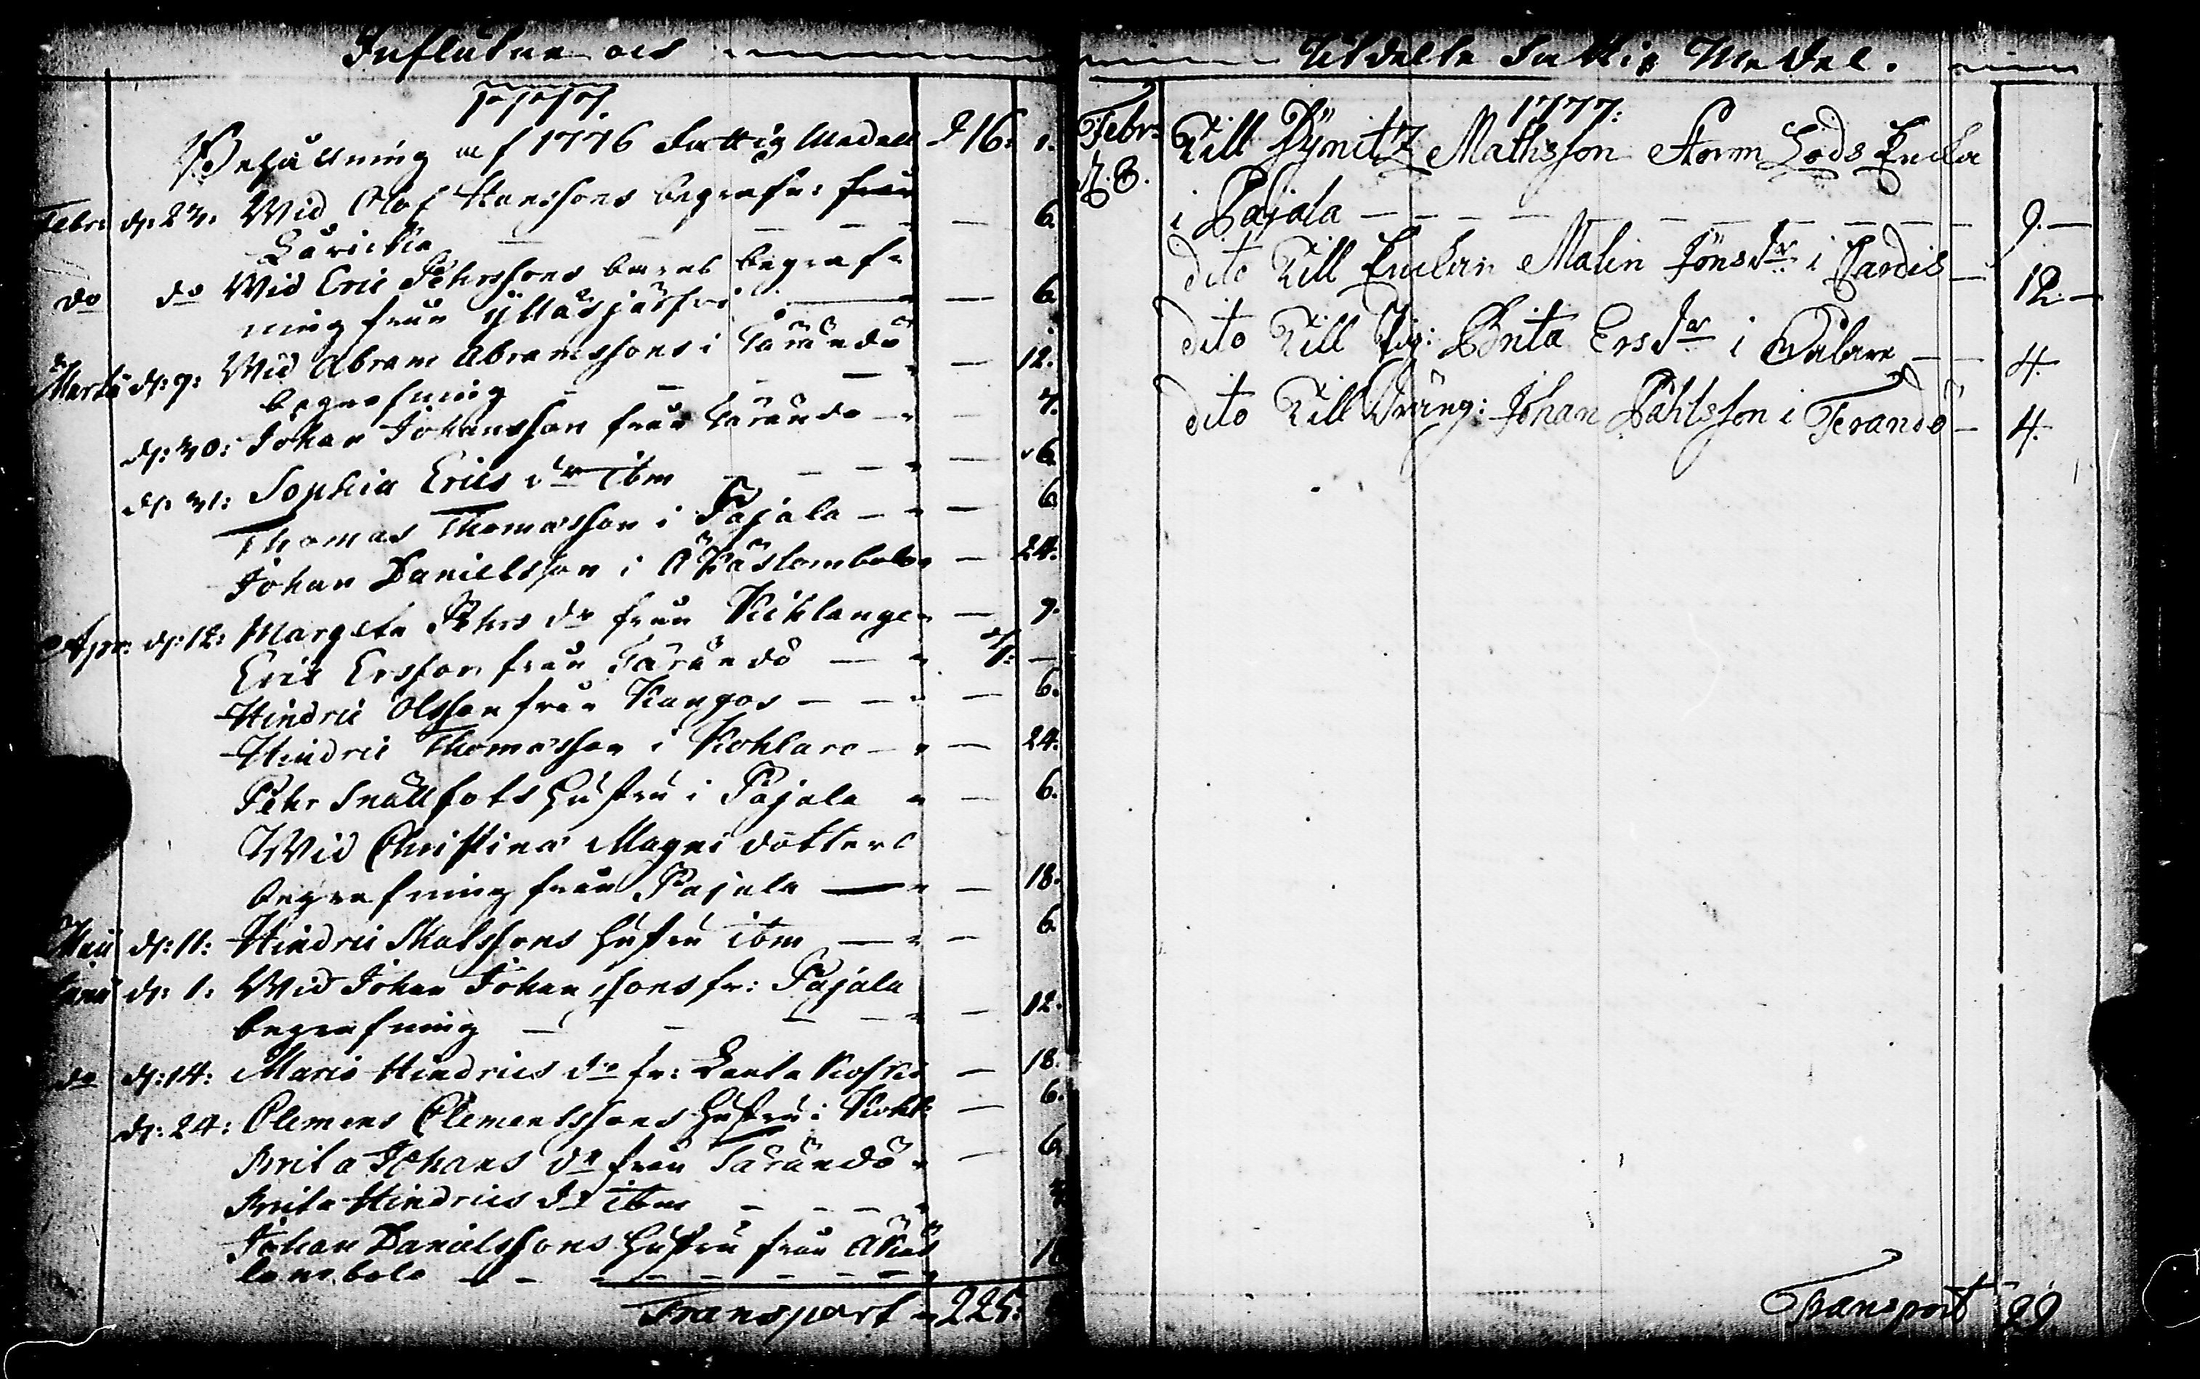 Influtne och
1777.
Behållning af 1776 Fattig Medell 216: 1.
Febr: d: 23. Wid Olof Hanssons begrafn: från
Lauricka — — — — 6.
do do Wid Eric Pehrssons barns begraf-
ning från Ylläsjärfvi — 6.
Martii d: 9: Wid Abram Abramssons i Tärändö
begrafning — — — 12.
d: 30: Johan Johansson från Tärändö —
d: 31: Sophia Erics dr ibm — — — 6.
Thomas Thomasson i Pajala — — 6
Johan Danielsson i Äkäslombolo — 24.
Apr: d: 12: Margeta Pehrs dr från Kihlange — 9.
Eric Ersson från Tärändö — —
Hindric Olsson från Kangos — — 6.
Hindric Thomasson i Kohlare — — 24.
Pehr Snällfots Hustru i Pajala — 6.
Wid Christina Magni dotters
begrafning från Pajala — — 18.
Maii d: 11: Hindric Matssons hustru ibm — — 6
Junii d: 1: Wid Johan Johanssons fr: Pajala
begrafning — — — — 12.
do d: 14: Maria Hindrics dr fr: Koski — 18.
d: 24: Clemens Clemenssons Hustru i Kohl: — 6.
Brita Johans dr från Tärändö — 6
Brita Hindrics dr ibm — — —
Johan Danielssons Hustru från Äkäs
lombolo — — — — — —
Transport — 225:
Utdelte Fattig Medel.
1777:
Febr: Till Mathsson Storm Enka
28. i Pajala — — — — — — 9. —
dito Till Enkan Malin Jöns dr i Pardis — 12. —
dito Till Pig: Brita Ers dr i — — 4.
dito Till Dräng: Johan Påhlsson i Terandö — 4.
Transport 29.